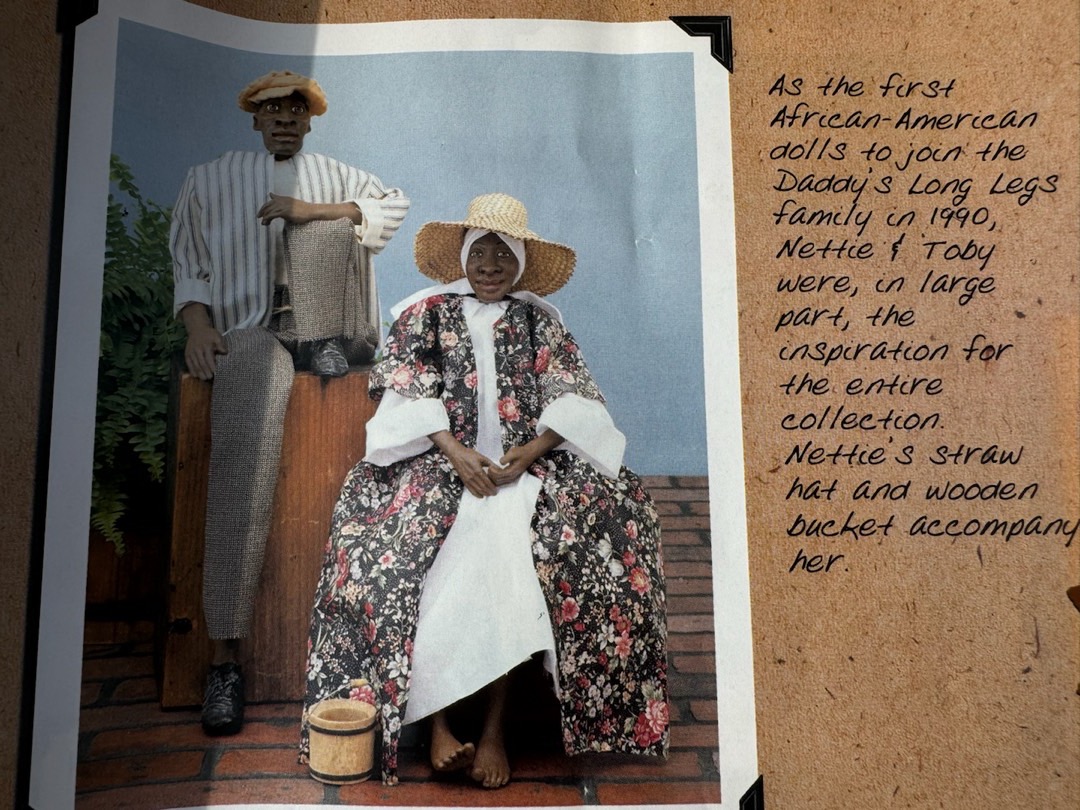 As the first
African-American
dolls to join the
Daddy's Long Legs
family in 1990,
Nettie & Toby
were, in large
part, the
inspiration for
the entire
collection.
Nettie's straw
hat and wooden
bucket accompany
her.